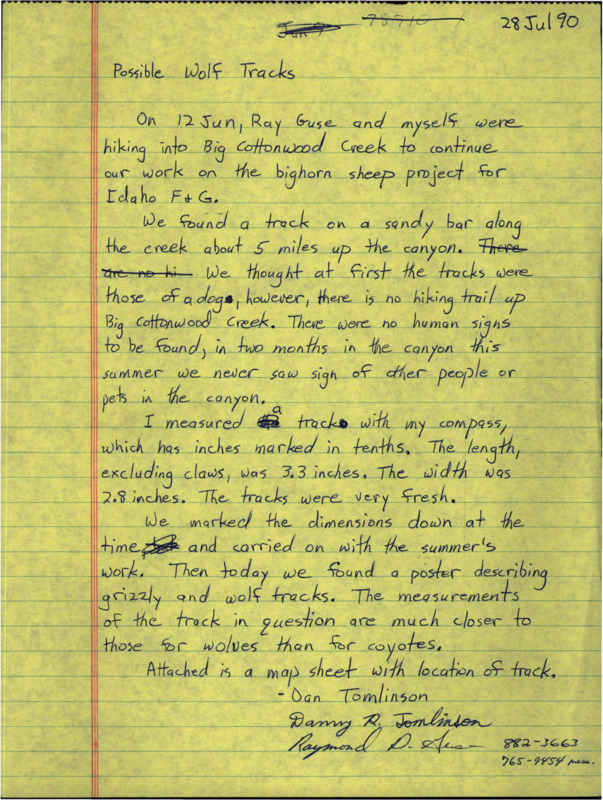 28 Jul 90
Possible Wolf Tracks
On 12 Jun, Ray Guse and myself were
hiking into Big Cottonwood Creek to continue
our work on the bighorn sheep project for
Idaho F+G.
We found a track on a sandy bar along
the creek about 5 miles up the canyon. There
are no hi We thought at first the tracks were
those of a dog, however, there is no hiking trail up
Big Cottonwood Creek. There were no human signs
to be found, in two months in the canyon this
summer we never saw sign of other people or
pets in the canyon.
I measured a track with my compass,
which has inches marked in tenths. The length,
excluding claws, was 3.3 inches. The width was
2.8 inches. The tracks were very fresh.
We marked the dimensions down at the
time, and carried on with the summer's
work. Then today we found a poster describing
grizzly and wolf tracks. The measurements
of the track in question are much closer to
those for wolves than for coyotes.
Attached is a map sheet with location of track.
- Dan Tomlinson
Danny R. Tomlinson
Raymond D. Guse 882-3663
765-9454 mess.